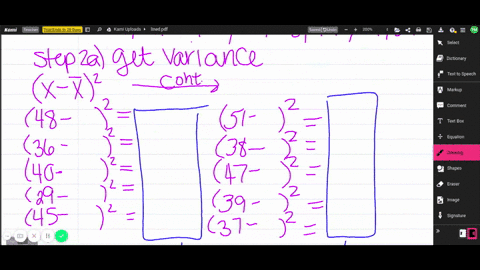 Kami
Kami Uploads
lined.pdf
200%
step 2a) get variance
(x-x̄)²
cont.
(48- )² =
(36- )² =
(40- )² =
(29- )² =
(45- )² =
(51- )² =
(38- )² =
(47- )² =
(39- )² =
(37- )² =
Select
Dictionary
Text to Speech
Markup
Comment
Text Box
Equation
Drawing
Shapes
Eraser
Image
Signature